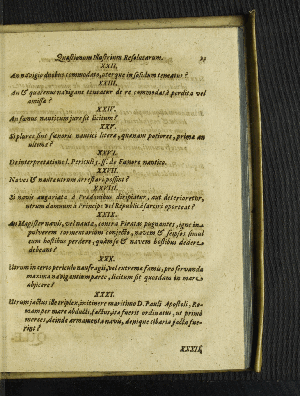 Quæstionum Nostrarum Resolutarum.
XXII.
An navigio duobus commodato, uterque in solidum teneatur?
XXIII.
An & quatenus navigans teneatur de re commodata perdita vel
amissa?
XXIV.
An fœnus nauticum jure sit licitum?
XXV.
Si plures sint fœnoris nautici litera, quænam potiores, prima an
ultima?
XXVI.
De interpretatione l. Periculi 5. ff. de Fœnore nautico.
XXVII.
Naves & nautæ utrum arrestari possint?
XXVIII.
Si navis angariata à Prædonibus diripiatur, aut deterioretur,
utrum damnum à Principe vel Republica sarciri oporteat?
XXIX.
An Magister navis, vel nauta, contra Piratas pugnantes, igne in
pulverem tormentarium conjecto, navem & seipsos simul
cum hostibus perdere, quàm se & navem hostibus dedere
debeant?
XXX.
Utrum in certo periculo naufragii, vel extrema famis, pro servanda
maxima navigantium parte, licitum sit quosdam in mare
abjicere?
XXXI.
Utrum jactus ille triplex, in itinere maritimo D. Pauli Apostoli, Ro-
mam per mare abducti, factus, ita fuerit ordinatus, ut primò
merces, deinde armamenta navis, denique cibaria jacta fue-
rint?
XXXII.